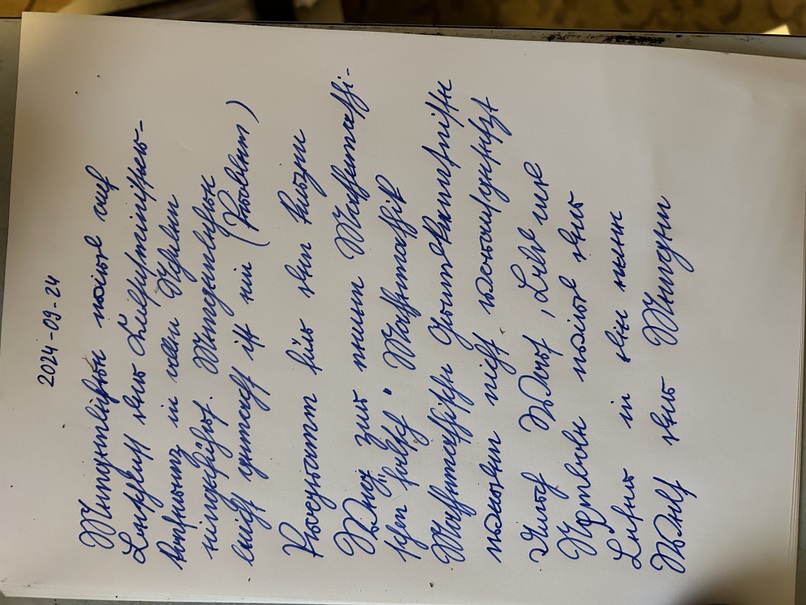 2024-09-24
Mengenlehre wird auf
Beschluss der Kultusminister-
konferenz in allen Schulen
eingeführt. Mengenlehre
leicht gemacht ist ein (Problem)
Programm für den kurzen
Weg zur neuen Mathemathi-
schen "falsch" Mathemathik
Mathemathische Grundkenntnisse
werden nicht vorausgesetzt
Durch Wort, Bild und
Symbole wird der
Lehrer in die neue
Welt der Mengen